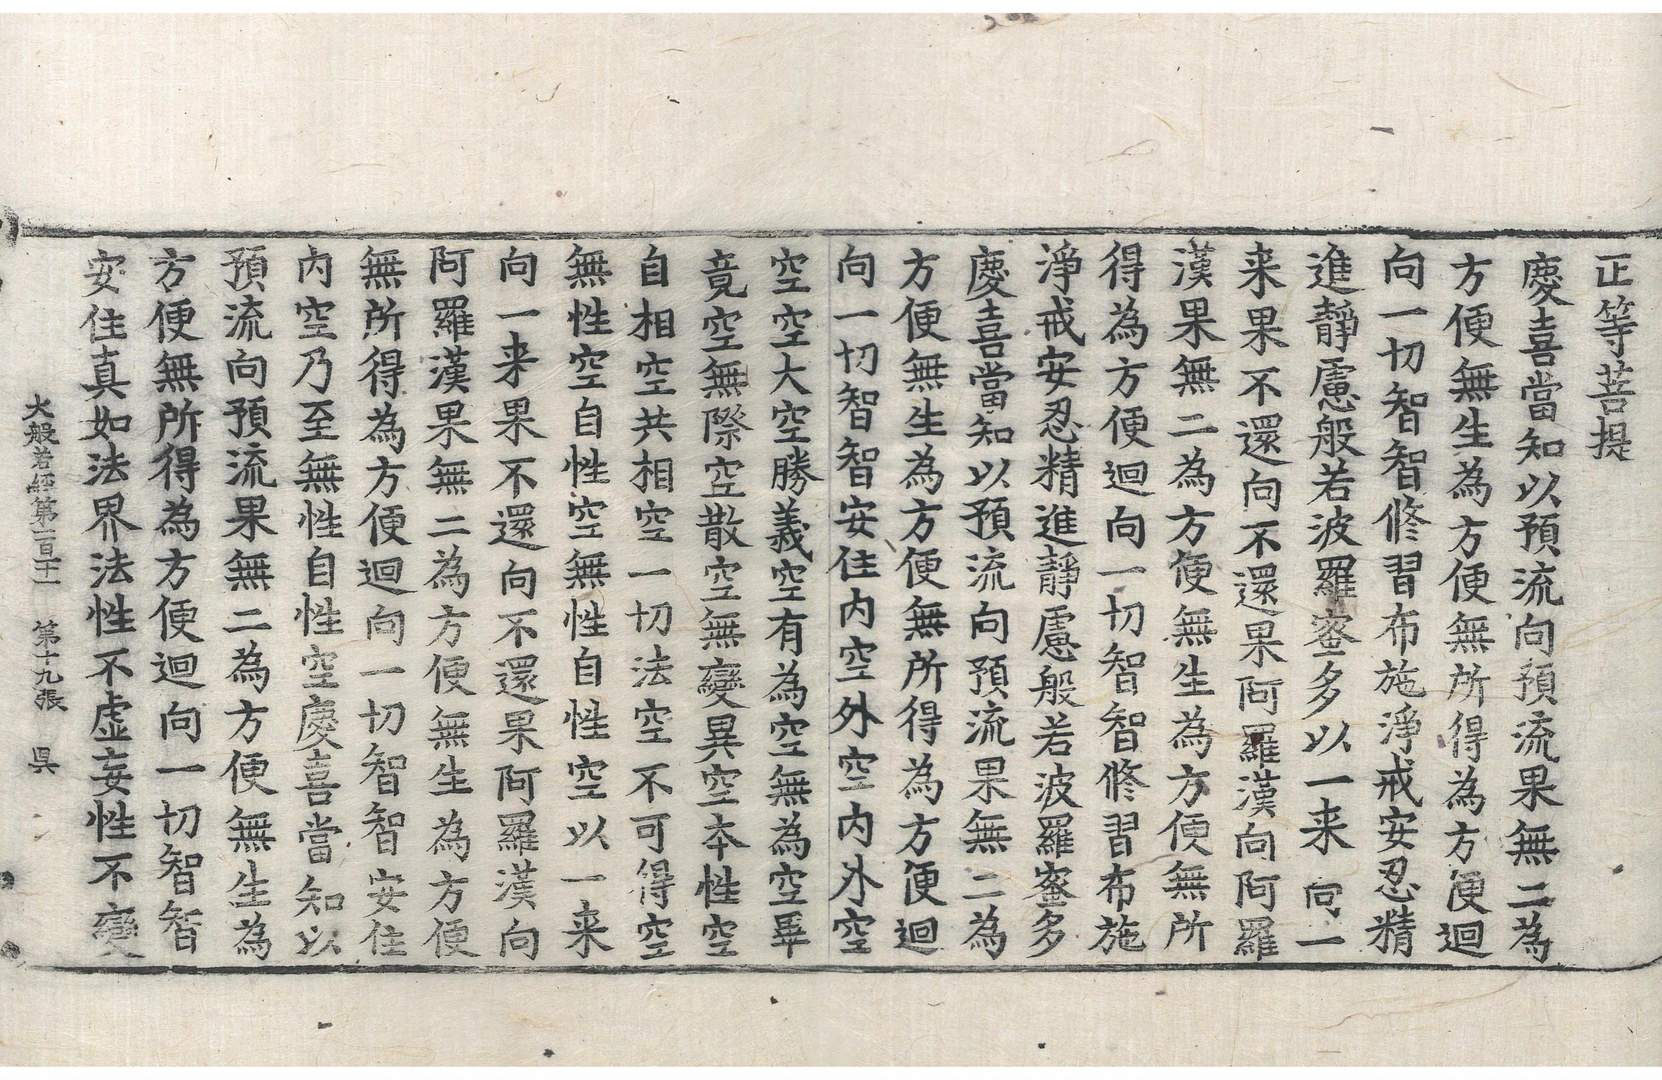 正等菩提
慶喜當知以預流向預流果無二為
方便無生為方便無所得為方便迴
向一切智智修習布施淨戒安忍精
進靜慮般若波羅蜜多以一来向一
来果不還向不還果阿羅漢向阿羅
漢果無二為方便無生為方便無所
得為方便迴向一切智智修習布施
淨戒安忍精進靜慮般若波羅蜜多
慶喜當知以預流向預流果無二為
方便無生為方便無所得為方便迴
向一切智智安住內空外空內外空
空空大空勝義空有為空無為空畢
竟空無際空散空無變異空本性空
自相空共相空一切法空不可得空
無性空自性空無性自性空以一来
向一来果不還向不還果阿羅漢向
阿羅漢果無二為方便無生為方便
無所得為方便迴向一切智智安住
內空乃至無性自性空慶喜當知以
預流向預流果無二為方便無生為
方便無所得為方便迴向一切智智
安住真如法界法性不虛妄性不變
大般若經第一百十一 第十九張 㫷